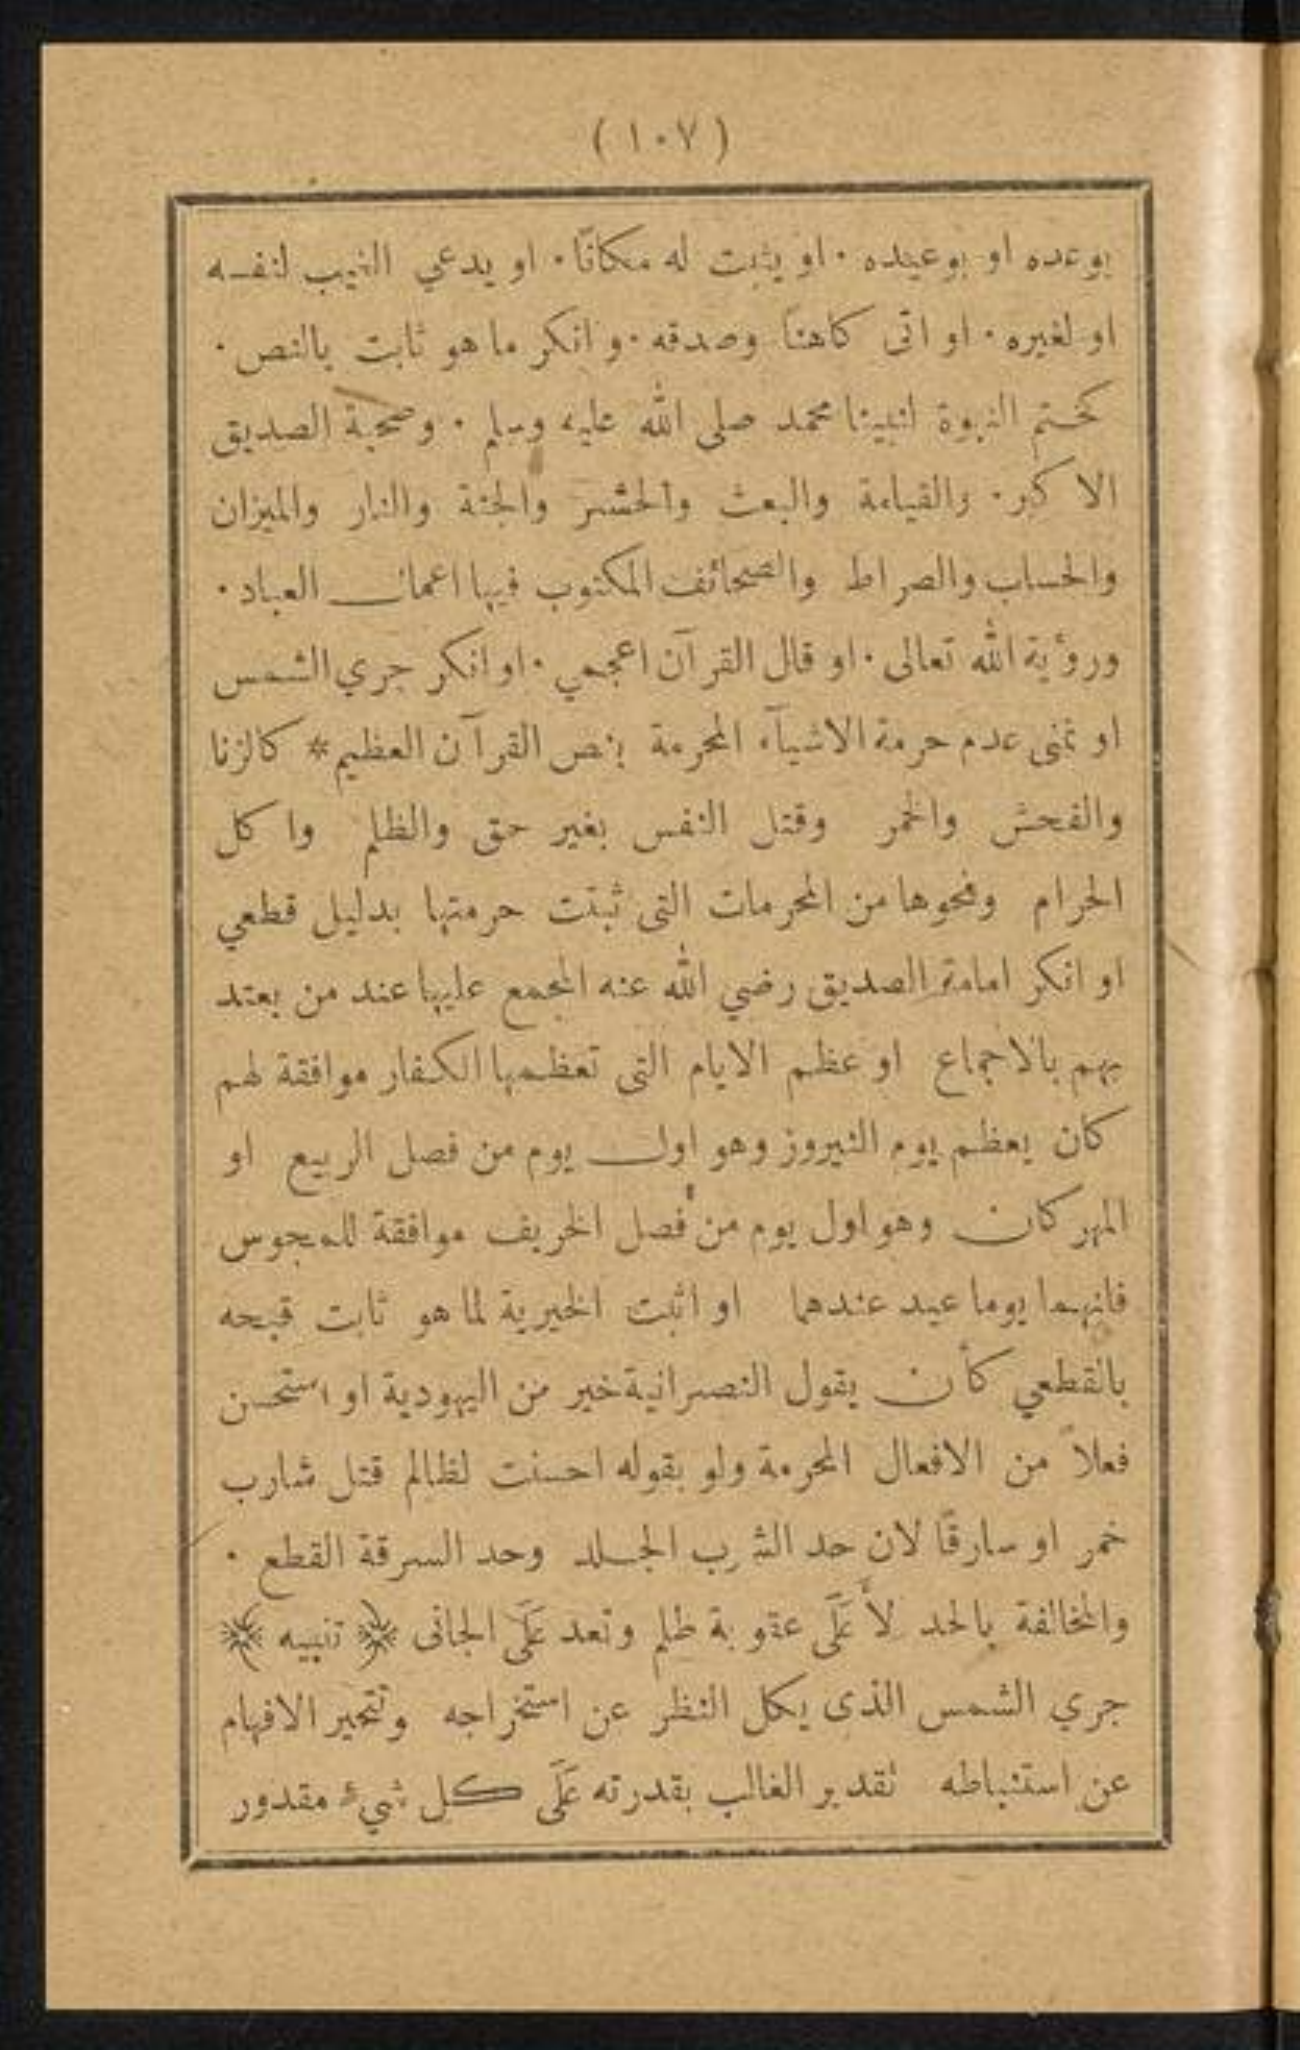 (١٠٧)
بوعده او بوعيده · او يثبت له مكانًا · او يدعي الغيب لنفسه
او لغيره · او اتى كاهنًا وصدقه · وانكر ما هو ثابت بالنص ·
كختم النبوة لنبينا محمد صلى الله عليه وسلم · وصحبة الصديق
الاكبر · والقيامة والبعث والحشر والجنة والنار والميزان
والحساب والصراط والصحائف المكتوب فيها اعمال العباد ·
ورؤية الله تعالى · او قال القرآن اعجمي · او انكر جري الشمس
او تمنى عدم حرمة الاشيآء المحرمة بنص القرآن العظيم * كالزنا
والفحش والخمر وقتل النفس بغير حق والظلم واكل
الحرام ونحوها من المحرمات التى ثبتت حرمتها بدليل قطعي
او انكر امامة الصديق رضي الله عنه المجمع عليها عند من يعتد
بهم بالاجماع او عظم الايام التى تعظمها الكفار موافقة لهم
كان يعظم يوم النيروز وهو اول يوم من فصل الربيع او
المهركان وهو اول يوم من فصل الخريف موافقة للمجوس
فانهما يوما عيد عندهما او اثبت الخيرية لما هو ثابت قبحه
بالقطعي كأن يقول النصرانية خير من اليهودية او استحسن
فعلاً من الافعال المحرمة ولو بقوله احسنت لظالم قتل شارب
خمر او سارقًا لان حد الشرب الجلد وحد السرقة القطع ·
والمخالفة بالحد لأَعَلَى عقوبة ظلم وتعد عَلَى الجانى ﴿ تنبيه ﴾
جري الشمس الذى يكل النظر عن استخراجه وتتحير الافهام
عن استنباطه تقدير الغالب بقدرته عَلَى كل شيء مقدور